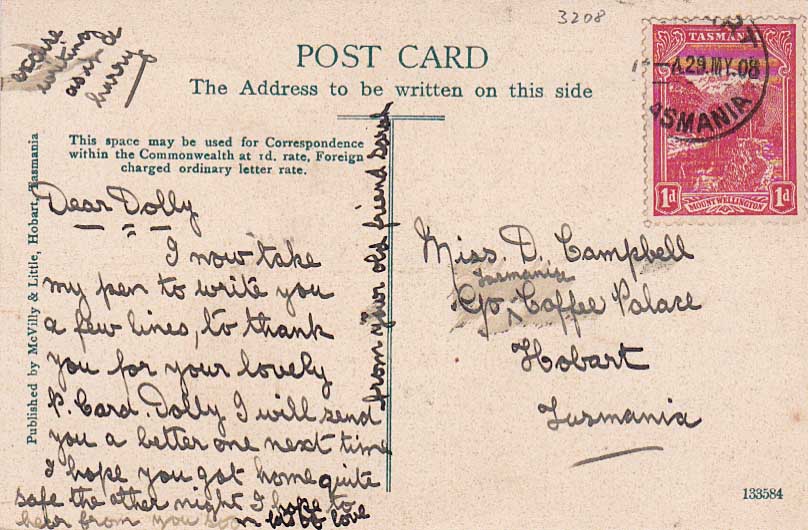 3208
excuse
writing
as in a
hurry
POST CARD
The Address to be written on this side
This space may be used for Correspondence
within the Commonwealth at 1d. rate, Foreign
charged ordinary letter rate.
Published by McVilly & Little, Hobart, Tasmania
Dear Dolly
I now take
my pen to write you
a few lines, to thank
you for your lovely
P. Card. Dolly I will send
you a better one next time
I hope you got home quite
safe the other night I hope to
hear from you soon lots of love
from your old friend Sarah
TASMANIA
29.MY.08
ASMANIA
1d
MOUNT WELLINGTON
1d
Miss. D. Campbell
Tasmania
C/o Coffee Palace
Hobart
Tasmania
133584